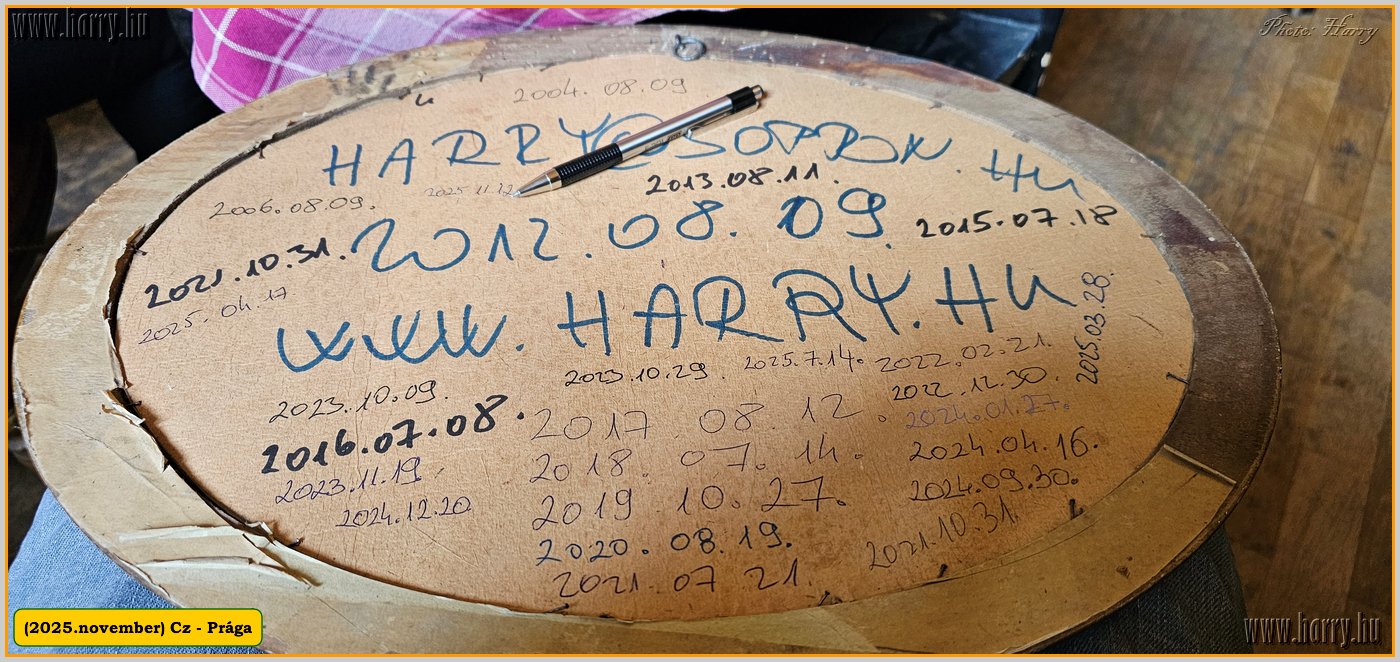 www.harry.hu
Photo: Harry
2004. 08.09
HARRY@SOPRON.HU
2025.11.12
2013.08.11.
2006.08.09.
2012.08.09.
2015.07.18
2021.10.31.
2025.04.17
WWW.HARRY.HU
2025.03.28.
2023.10.29.
2025.7.14.
2022.02.21.
2023.10.09.
2022.12.30.
2016.07.08.
2017.08.12.
2024.01.27.
2018.07.14.
2024.04.16.
2023.11.19.
2019.10.27.
2024.09.30.
2024.12.20.
2020.08.19.
2021.10.31.
2021.07 21.
(2025.november) Cz - Prága
www.harry.hu